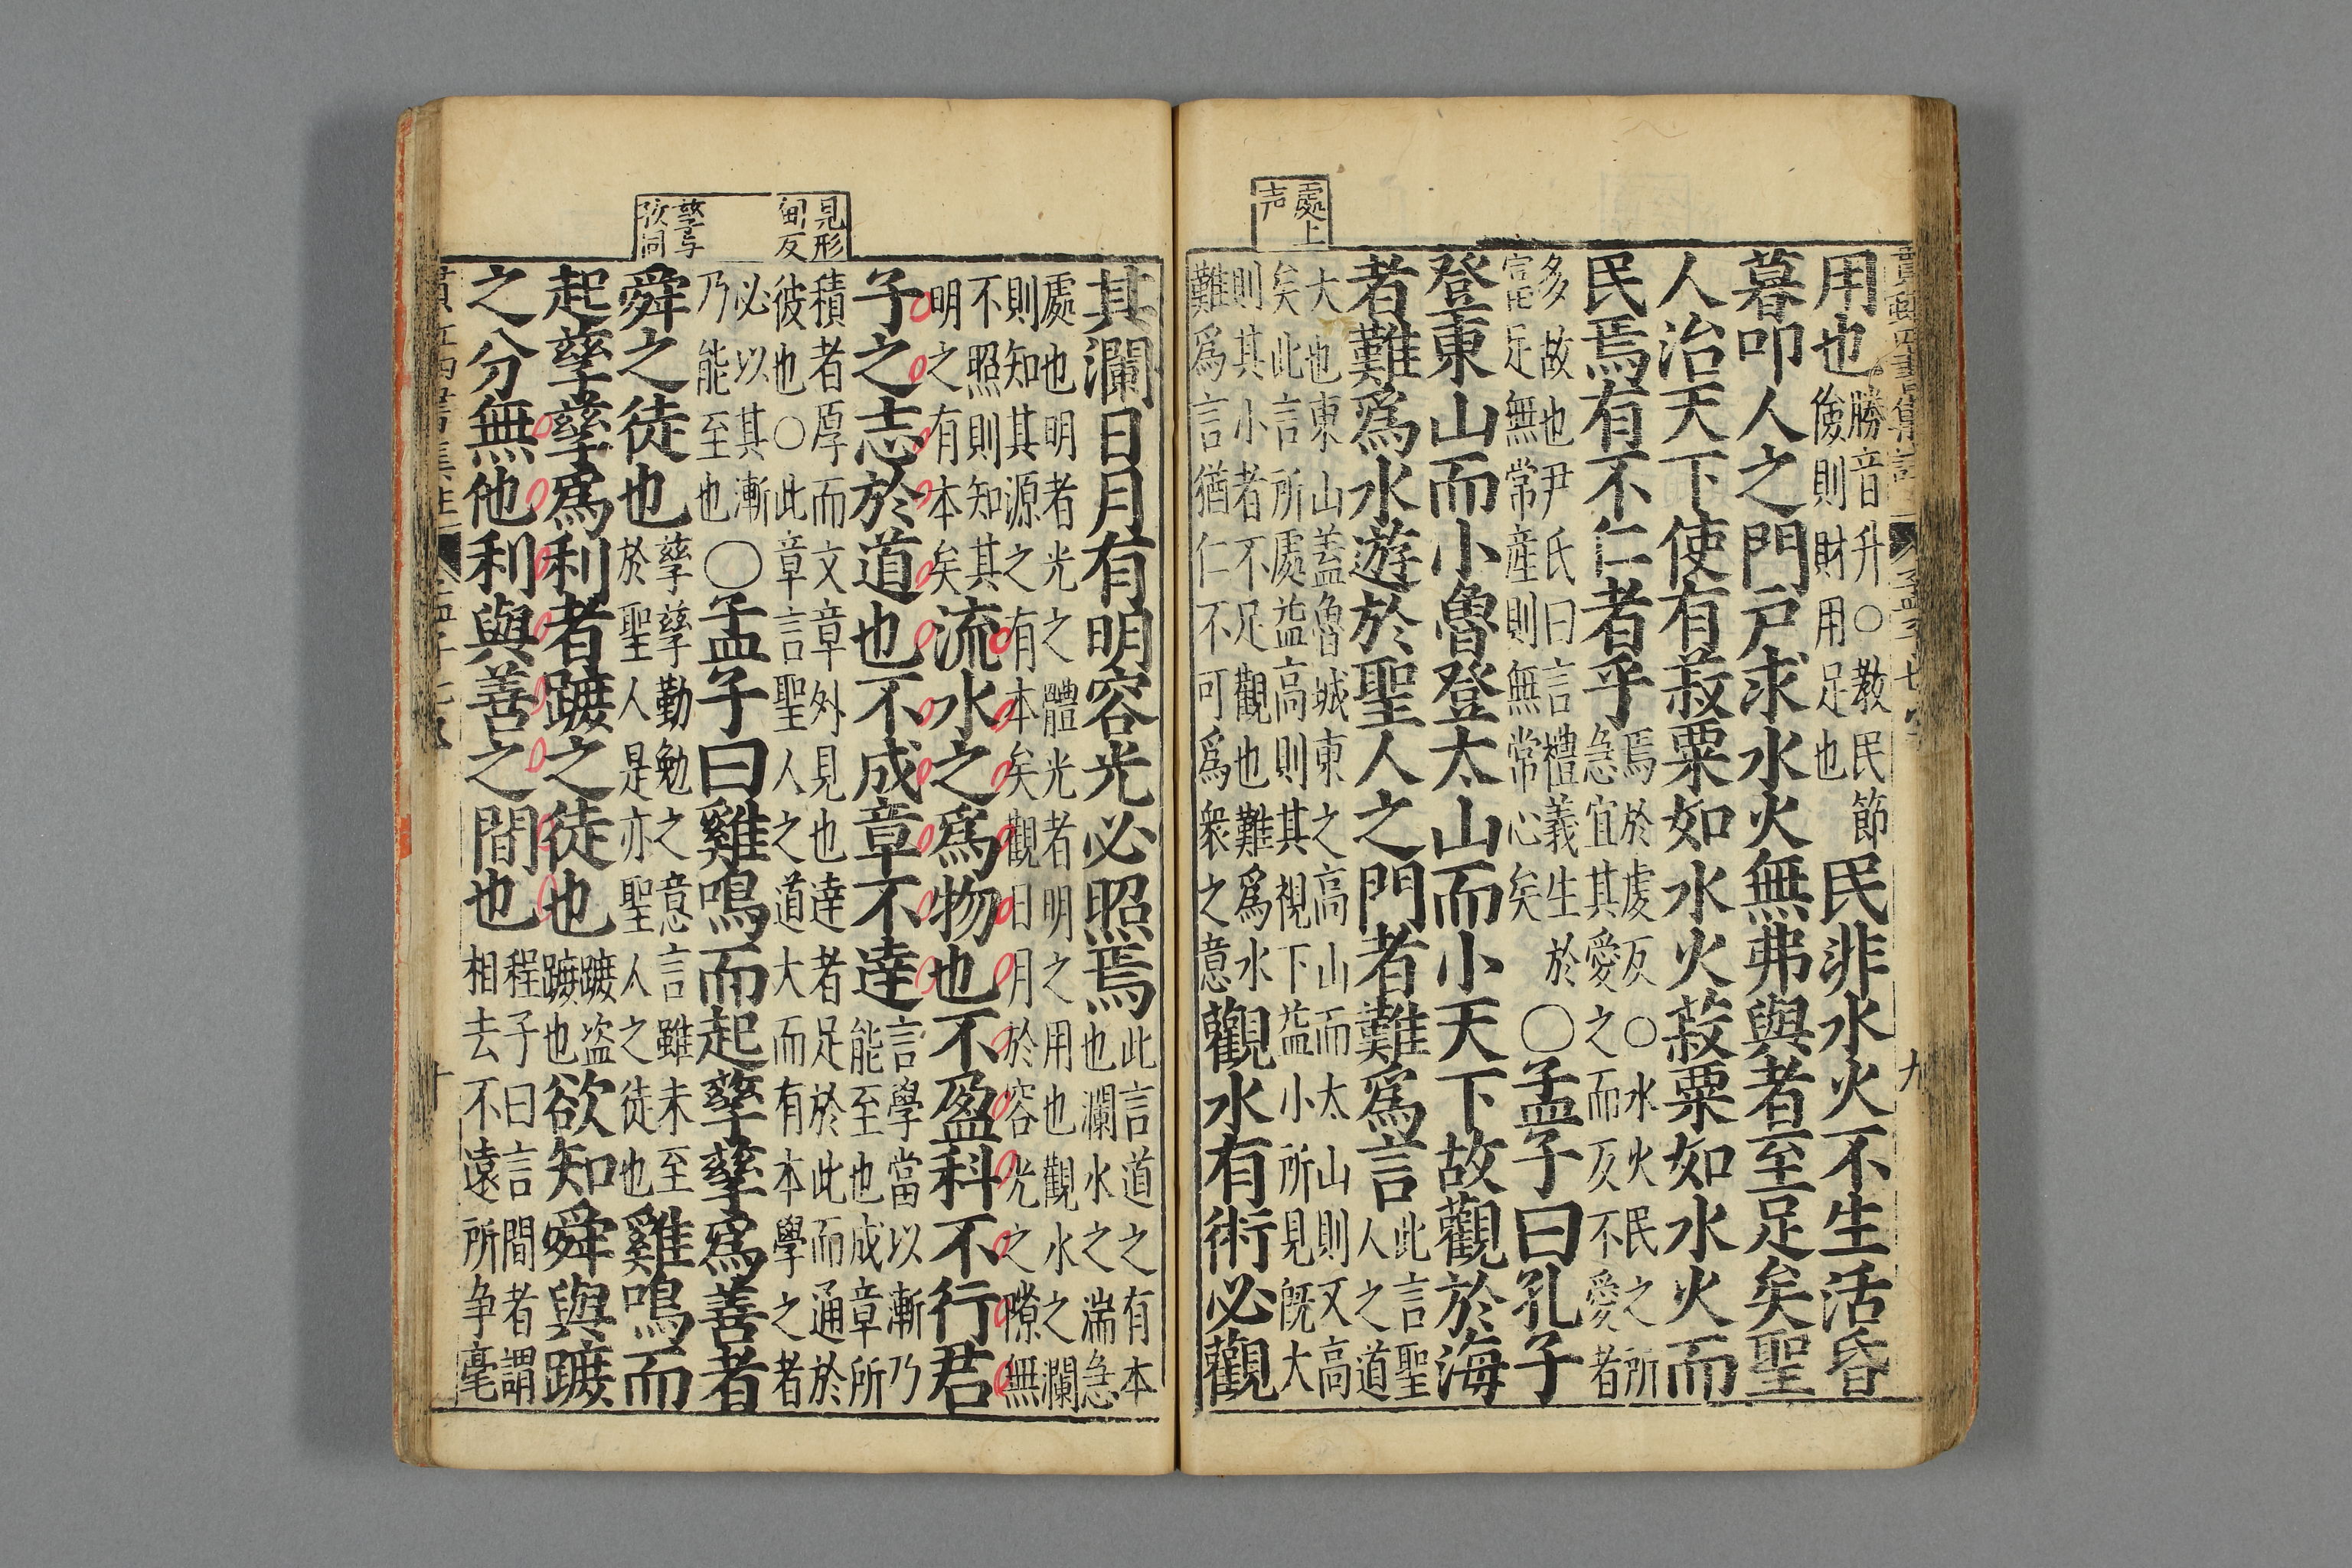 處上
声
用也勝音升○教民節
儉則財用足也民非水火不生活昏
暮叩人之門戶求水火無弗與者至足矣聖
人治天下使有菽粟如水火菽粟如水火而
民焉有不仁者乎焉於虔反○水火民之所
急宜其愛之而反不愛者
多故也尹氏曰言禮義生於
富足無常產則無常心矣○孟子曰孔子
登東山而小魯登太山而小天下故觀於海
者難爲水遊於聖人之門者難爲言此言聖
人之道
大也東山蓋魯城東之高山而太山則又高
矣此言所處益高則其視下益小所見旣大
則其小者不足觀也難爲水
難爲言猶仁不可爲衆之意觀水有術必觀
九
見形
甸反
孳与
孜同
其瀾日月有明容光必照焉此言道之有本
也瀾水之湍急
處也明者光之體光者明之用也觀水之瀾
則知其源之有本矣觀日月於容光之隙無
不照則知其
明之有本矣流水之爲物也不盈科不行君
子之志於道也不成章不達言學當以漸乃
能至也成章所
積者厚而文章外見也達者足於此而通於
彼也○此章言聖人之道大而有本學之者
必以其漸
乃能至也○孟子曰雞鳴而起孳孳爲善者
舜之徒也孳孳勤勉之意言雖未至
於聖人是亦聖人之徒也雞鳴而
起孳孳爲利者蹠之徒也蹠盜
蹠也欲知舜與蹠
之分無他利與善之間也程子曰言間者謂
相去不遠所爭毫